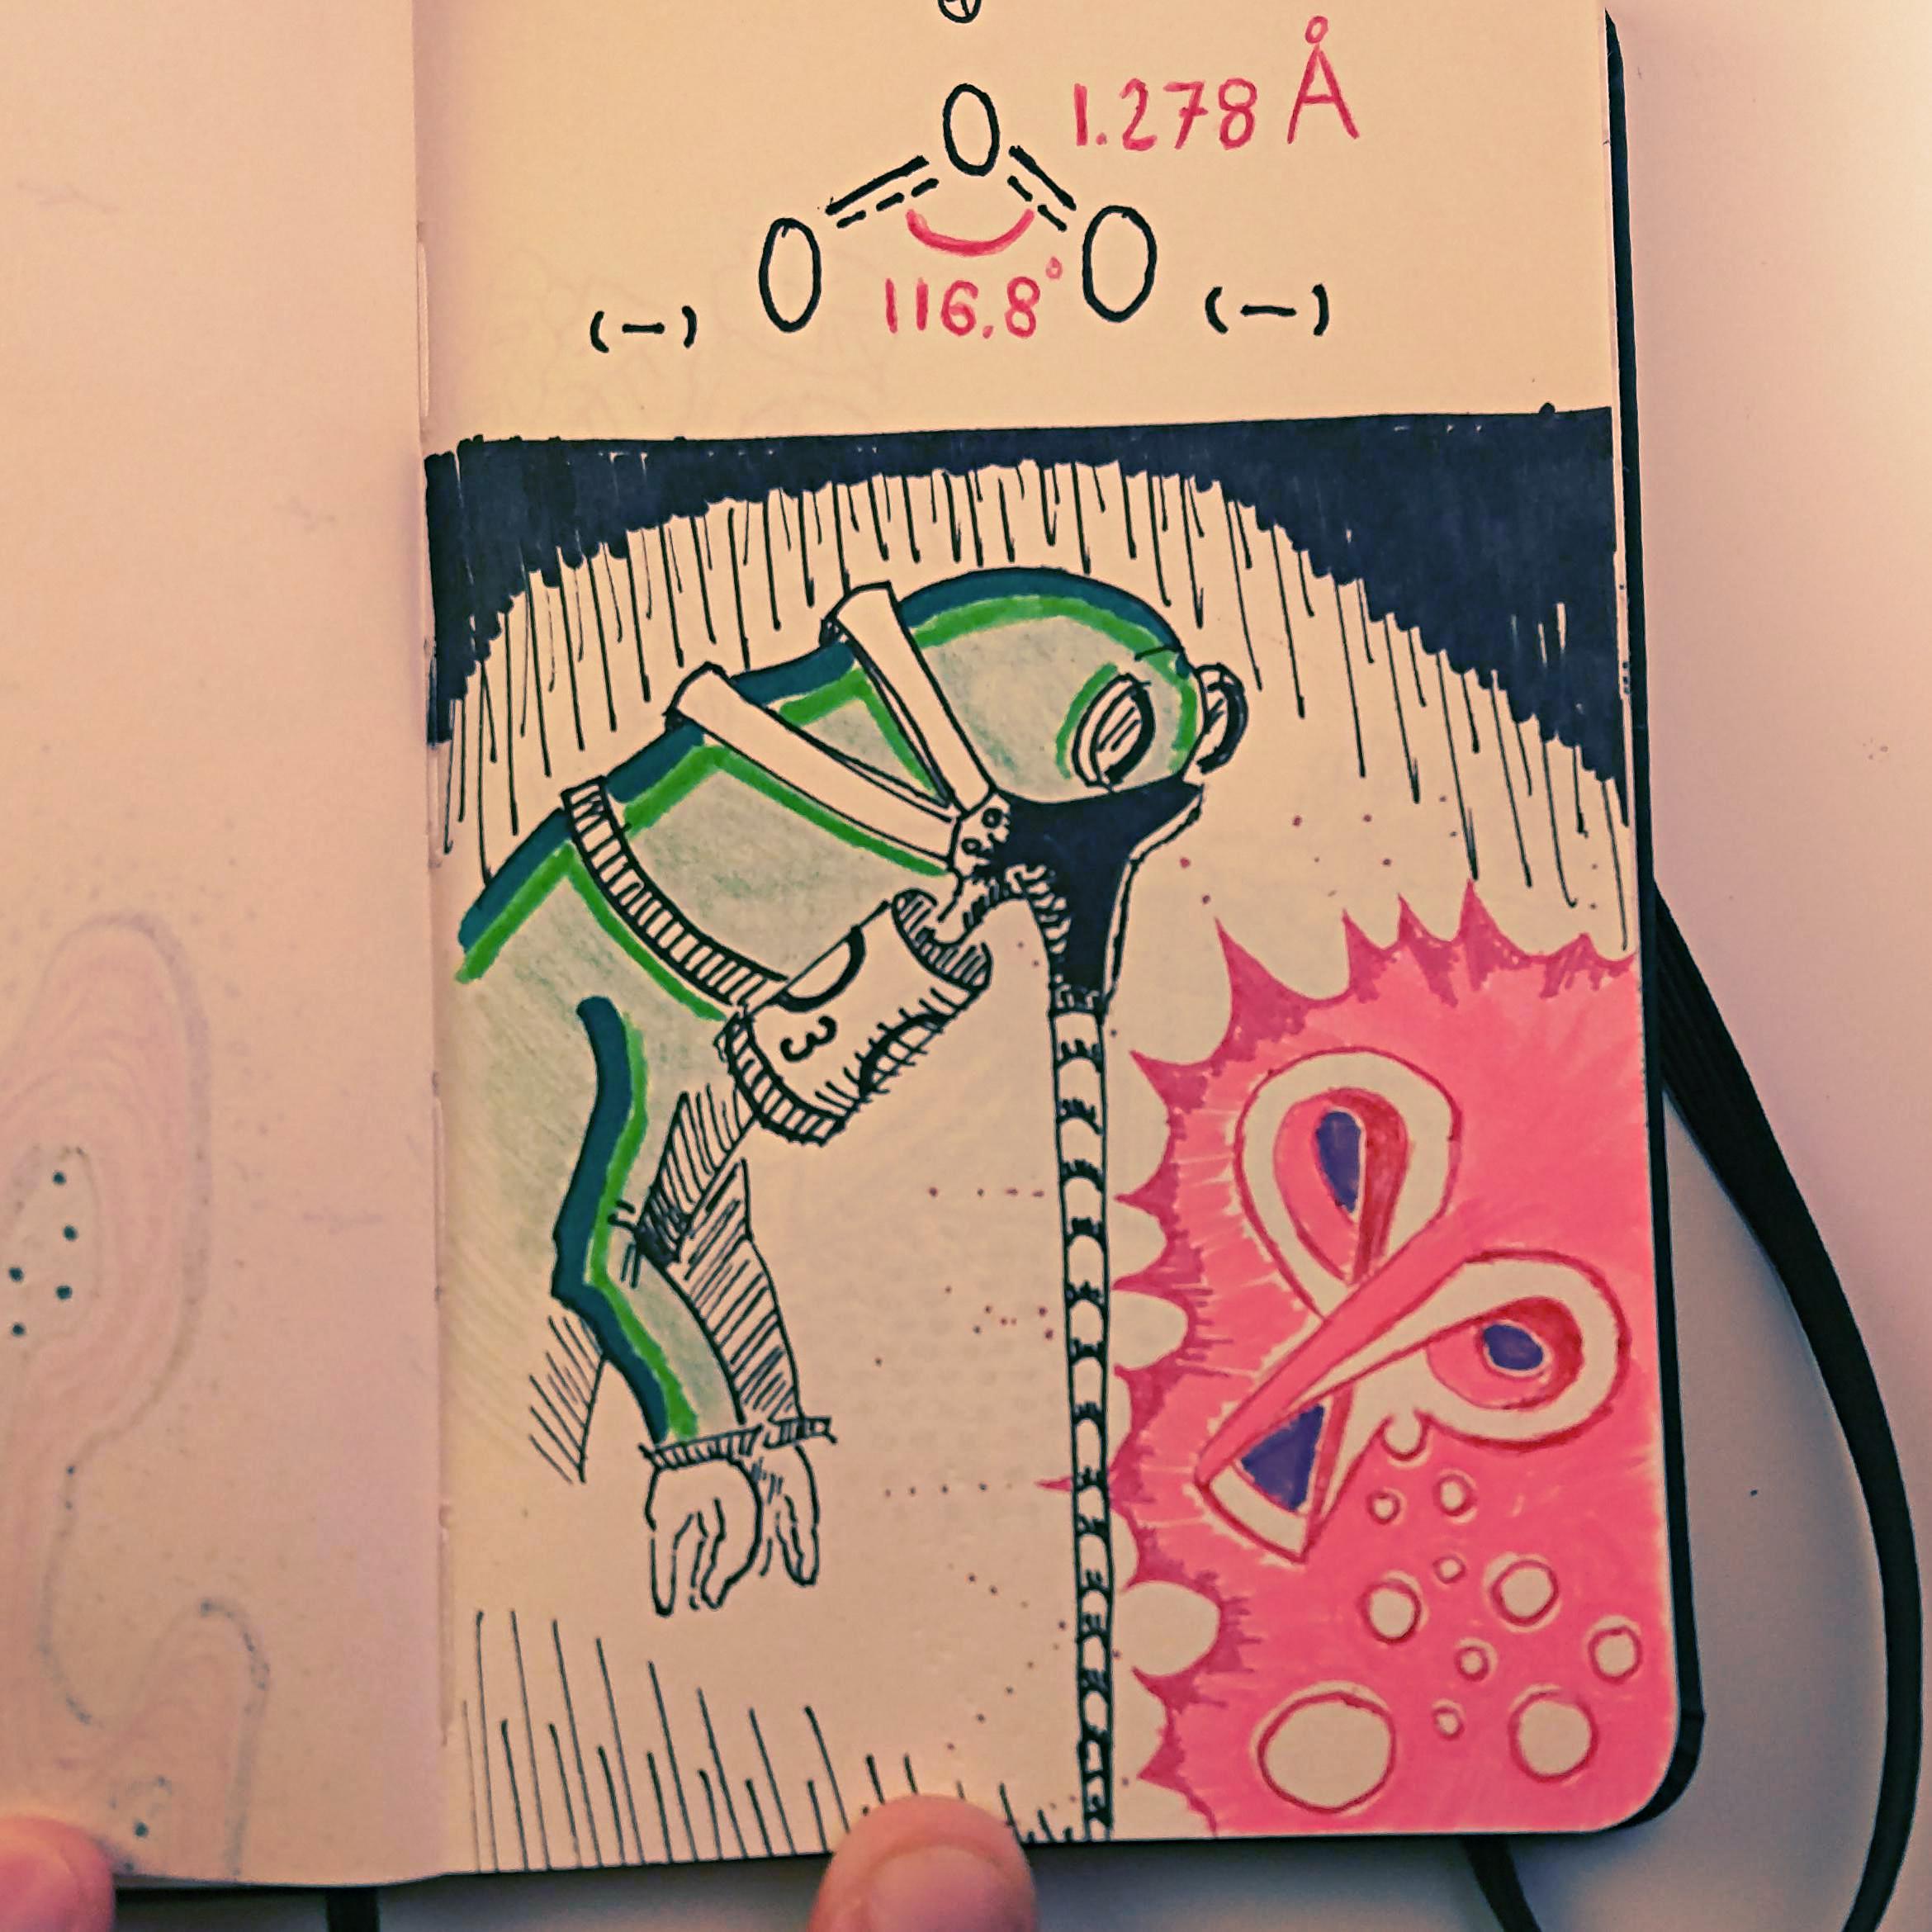 ⊕
O 1.278 Å
O O
116.8°
(−) (−)
O3